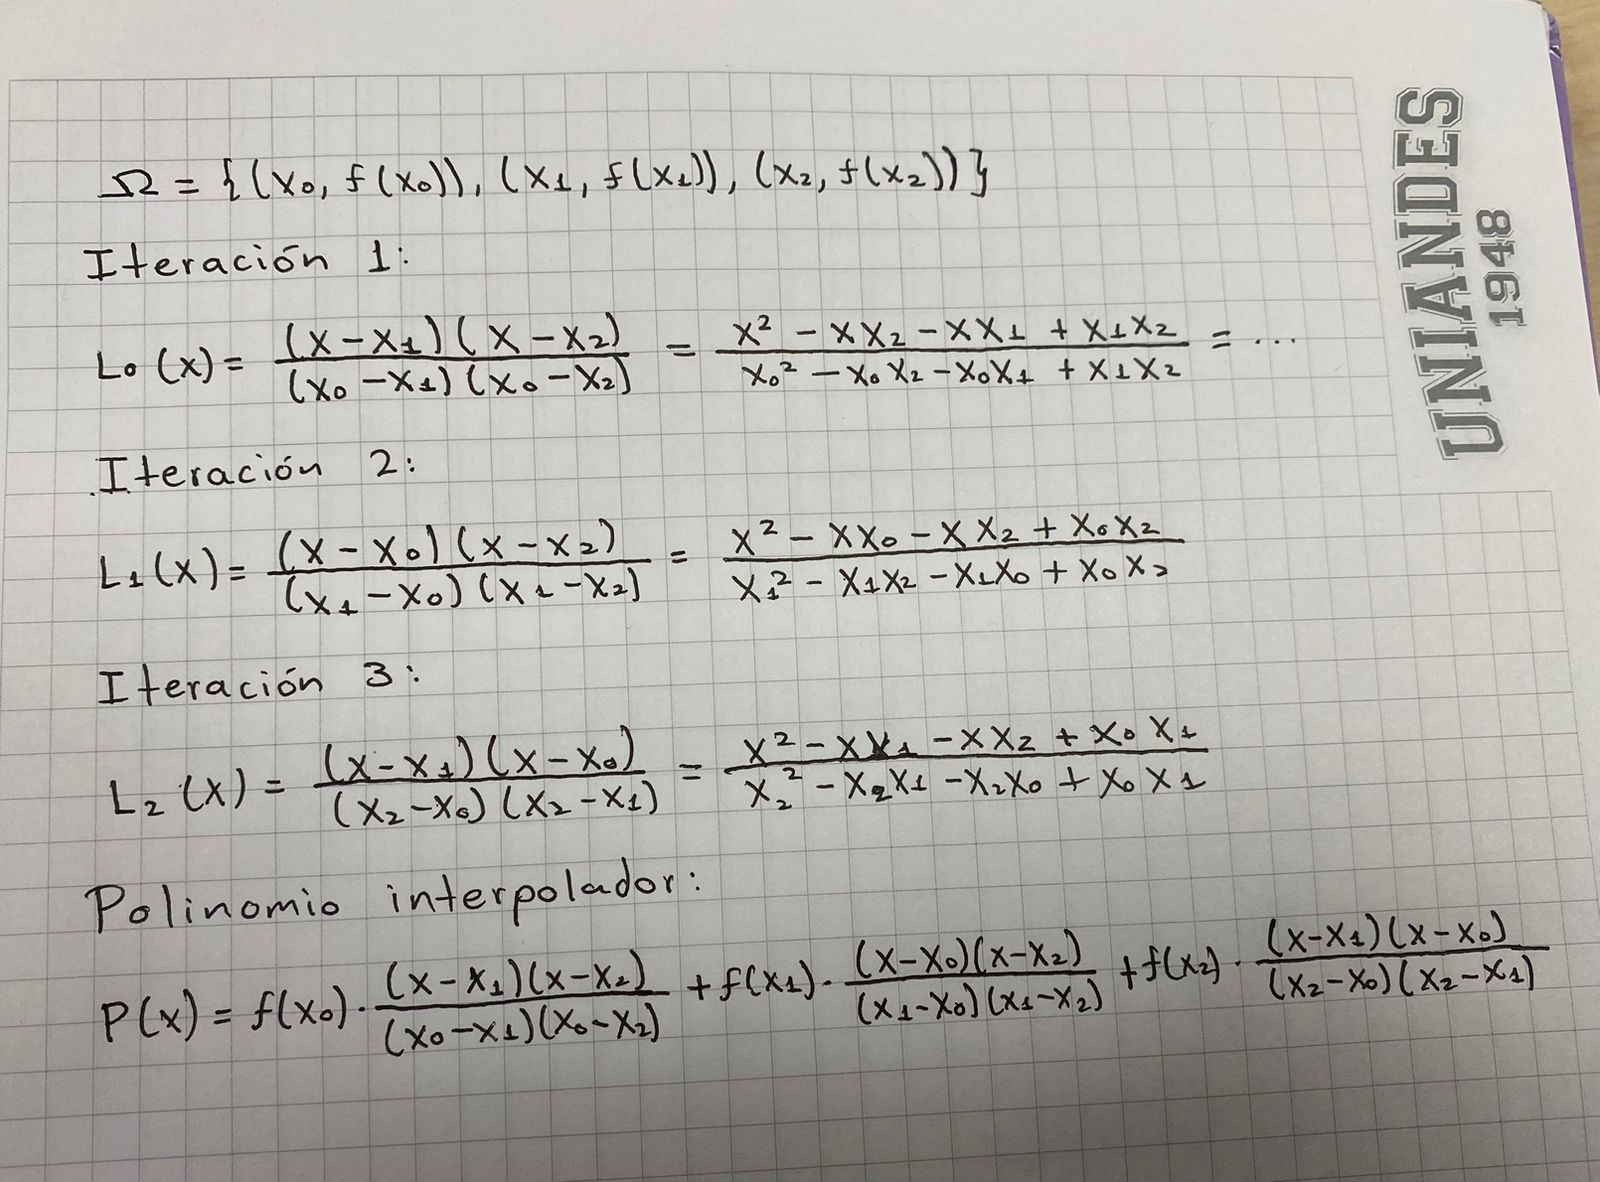 Ω = {(x₀, f(x₀)), (x₁, f(x₁)), (x₂, f(x₂))}
Iteración 1:
L₀(x) = (x-x₁)(x-x₂) / (x₀-x₁)(x₀-x₂) = x² - xx₂ - xx₁ + x₁x₂ / x₀² - x₀x₂ - x₀x₁ + x₁x₂ = ...
Iteración 2:
L₁(x) = (x-x₀)(x-x₂) / (x₁-x₀)(x₁-x₂) = x² - xx₀ - xx₂ + x₀x₂ / x₁² - x₁x₂ - x₁x₀ + x₀x₂
Iteración 3:
L₂(x) = (x-x₁)(x-x₀) / (x₂-x₀)(x₂-x₁) = x² - xx₁ - xx₂ + x₀x₁ / x₂² - x₂x₁ - x₂x₀ + x₀x₁
Polinomio interpolador:
P(x) = f(x₀)·(x-x₁)(x-x₂) / (x₀-x₁)(x₀-x₂) + f(x₁)·(x-x₀)(x-x₂) / (x₁-x₀)(x₁-x₂) + f(x₂)·(x-x₁)(x-x₀) / (x₂-x₀)(x₂-x₁)
UNIANDES
1948